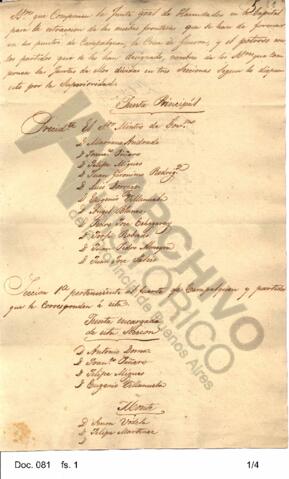 Sres. que componen la Junta Gral. de Hacendados en la Capital
para la extraccion de las nuevas fronteras que se han de formar
en los puntos de Campalquen, la Cruz de Guerra, y el
los partidos que se les han designado, nombre de los Sres. que
ponen las Juntas de ellos divididas en tres Secciones Segun lo dispu-
esto por la Superioridad.
Junta Principal
Presidte. El Sr. Mintro de Govno.
D Mariano Andrade
D Juan Piñero
D Felipe Miguez
D Juan Geronimo Rodrigz.
D Luis Dorrego
D Eugenio Villanueva
D Angel Blanco
D Pedro Jose Echegaray
D Roberto
D Juan Pedro
D Juan Jose
Seccion 1a. perteneciente al fuerte de Campalquen y partidos
que le corresponden á esta
Junta encargada
de esta Seccion
D Antonio Dorna
D Juan Piñero
D Felipe Miguez
D Eugenio Villanueva
Monte
D Simon Videla
D Felipe Martinez
ARCHIVO
HISTÓRICO
de la Provincia de Buenos Aires
Doc. 081 fs. 1
1/4